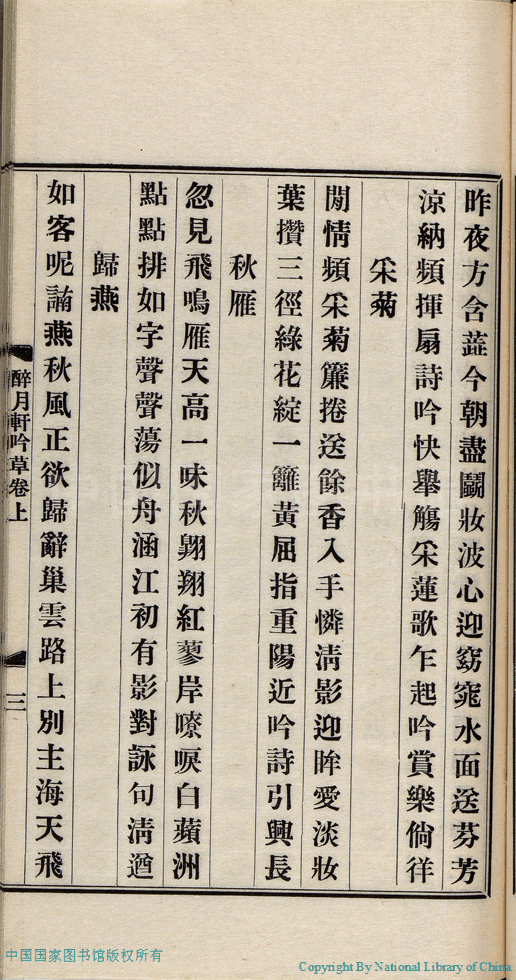 昨夜方含蘂今朝盡鬭妝波心迎窈窕水面送芬芳
涼納頻揮扇詩吟快舉觴采蓮歌乍起吟賞樂倘徉
采菊
閒情頻采菊簾捲送餘香入手憐淸影迎眸愛淡妝
葉攢三徑綠花綻一籬黃屈指重陽近吟詩引興長
秋雁
忽見飛鳴雁天高一味秋翺翔紅蓼岸嘹唳白蘋洲
點點排如字聲聲蕩似舟涵江初有影對詠句淸遒
歸燕
如客呢諵燕秋風正欲歸辭巢雲路上別主海天飛
醉月軒吟草卷上
三
中国国家图书馆版权所有
Copyright By National Library of China